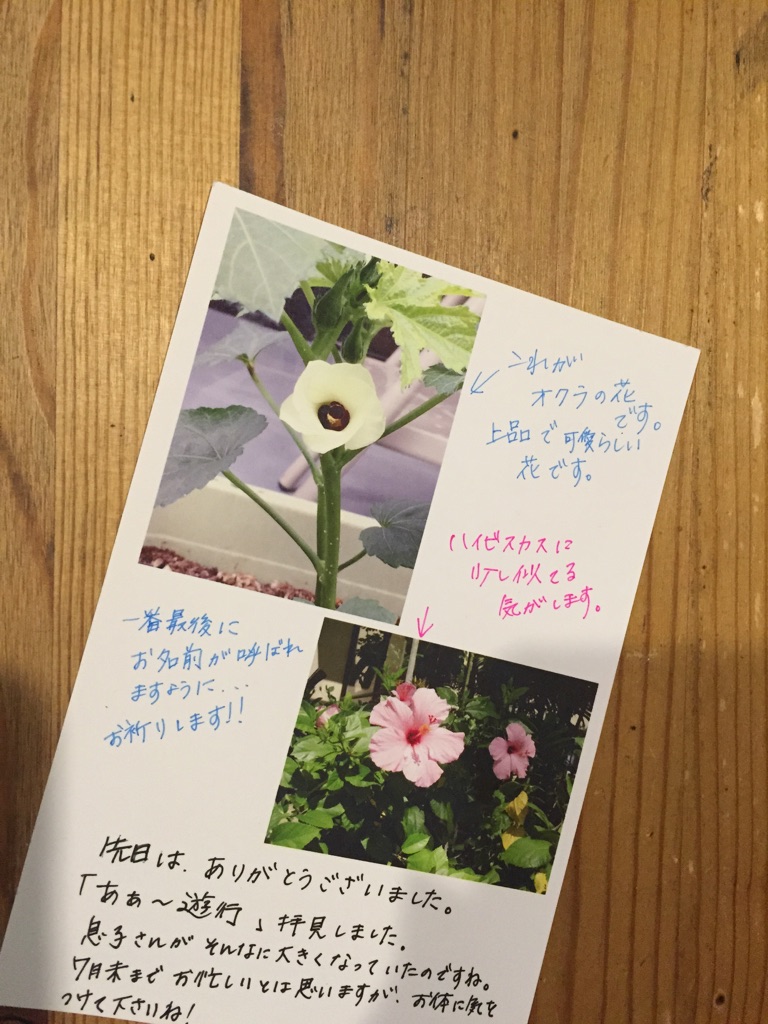 これが
オクラの花
です。
上品で可愛らしい
花です。
ハイビスカスに
少し似てる
気がします。
一番最後に
お名前が呼ばれ
ますように...
お祈りします!!
先日は、ありがとうございました。
「あぁ〜遊行」拝見しました。
息子さんがそんなに大きくなっていたのですね。
7月末までお忙しいとは思いますが、お体に気を
つけて下さいね!